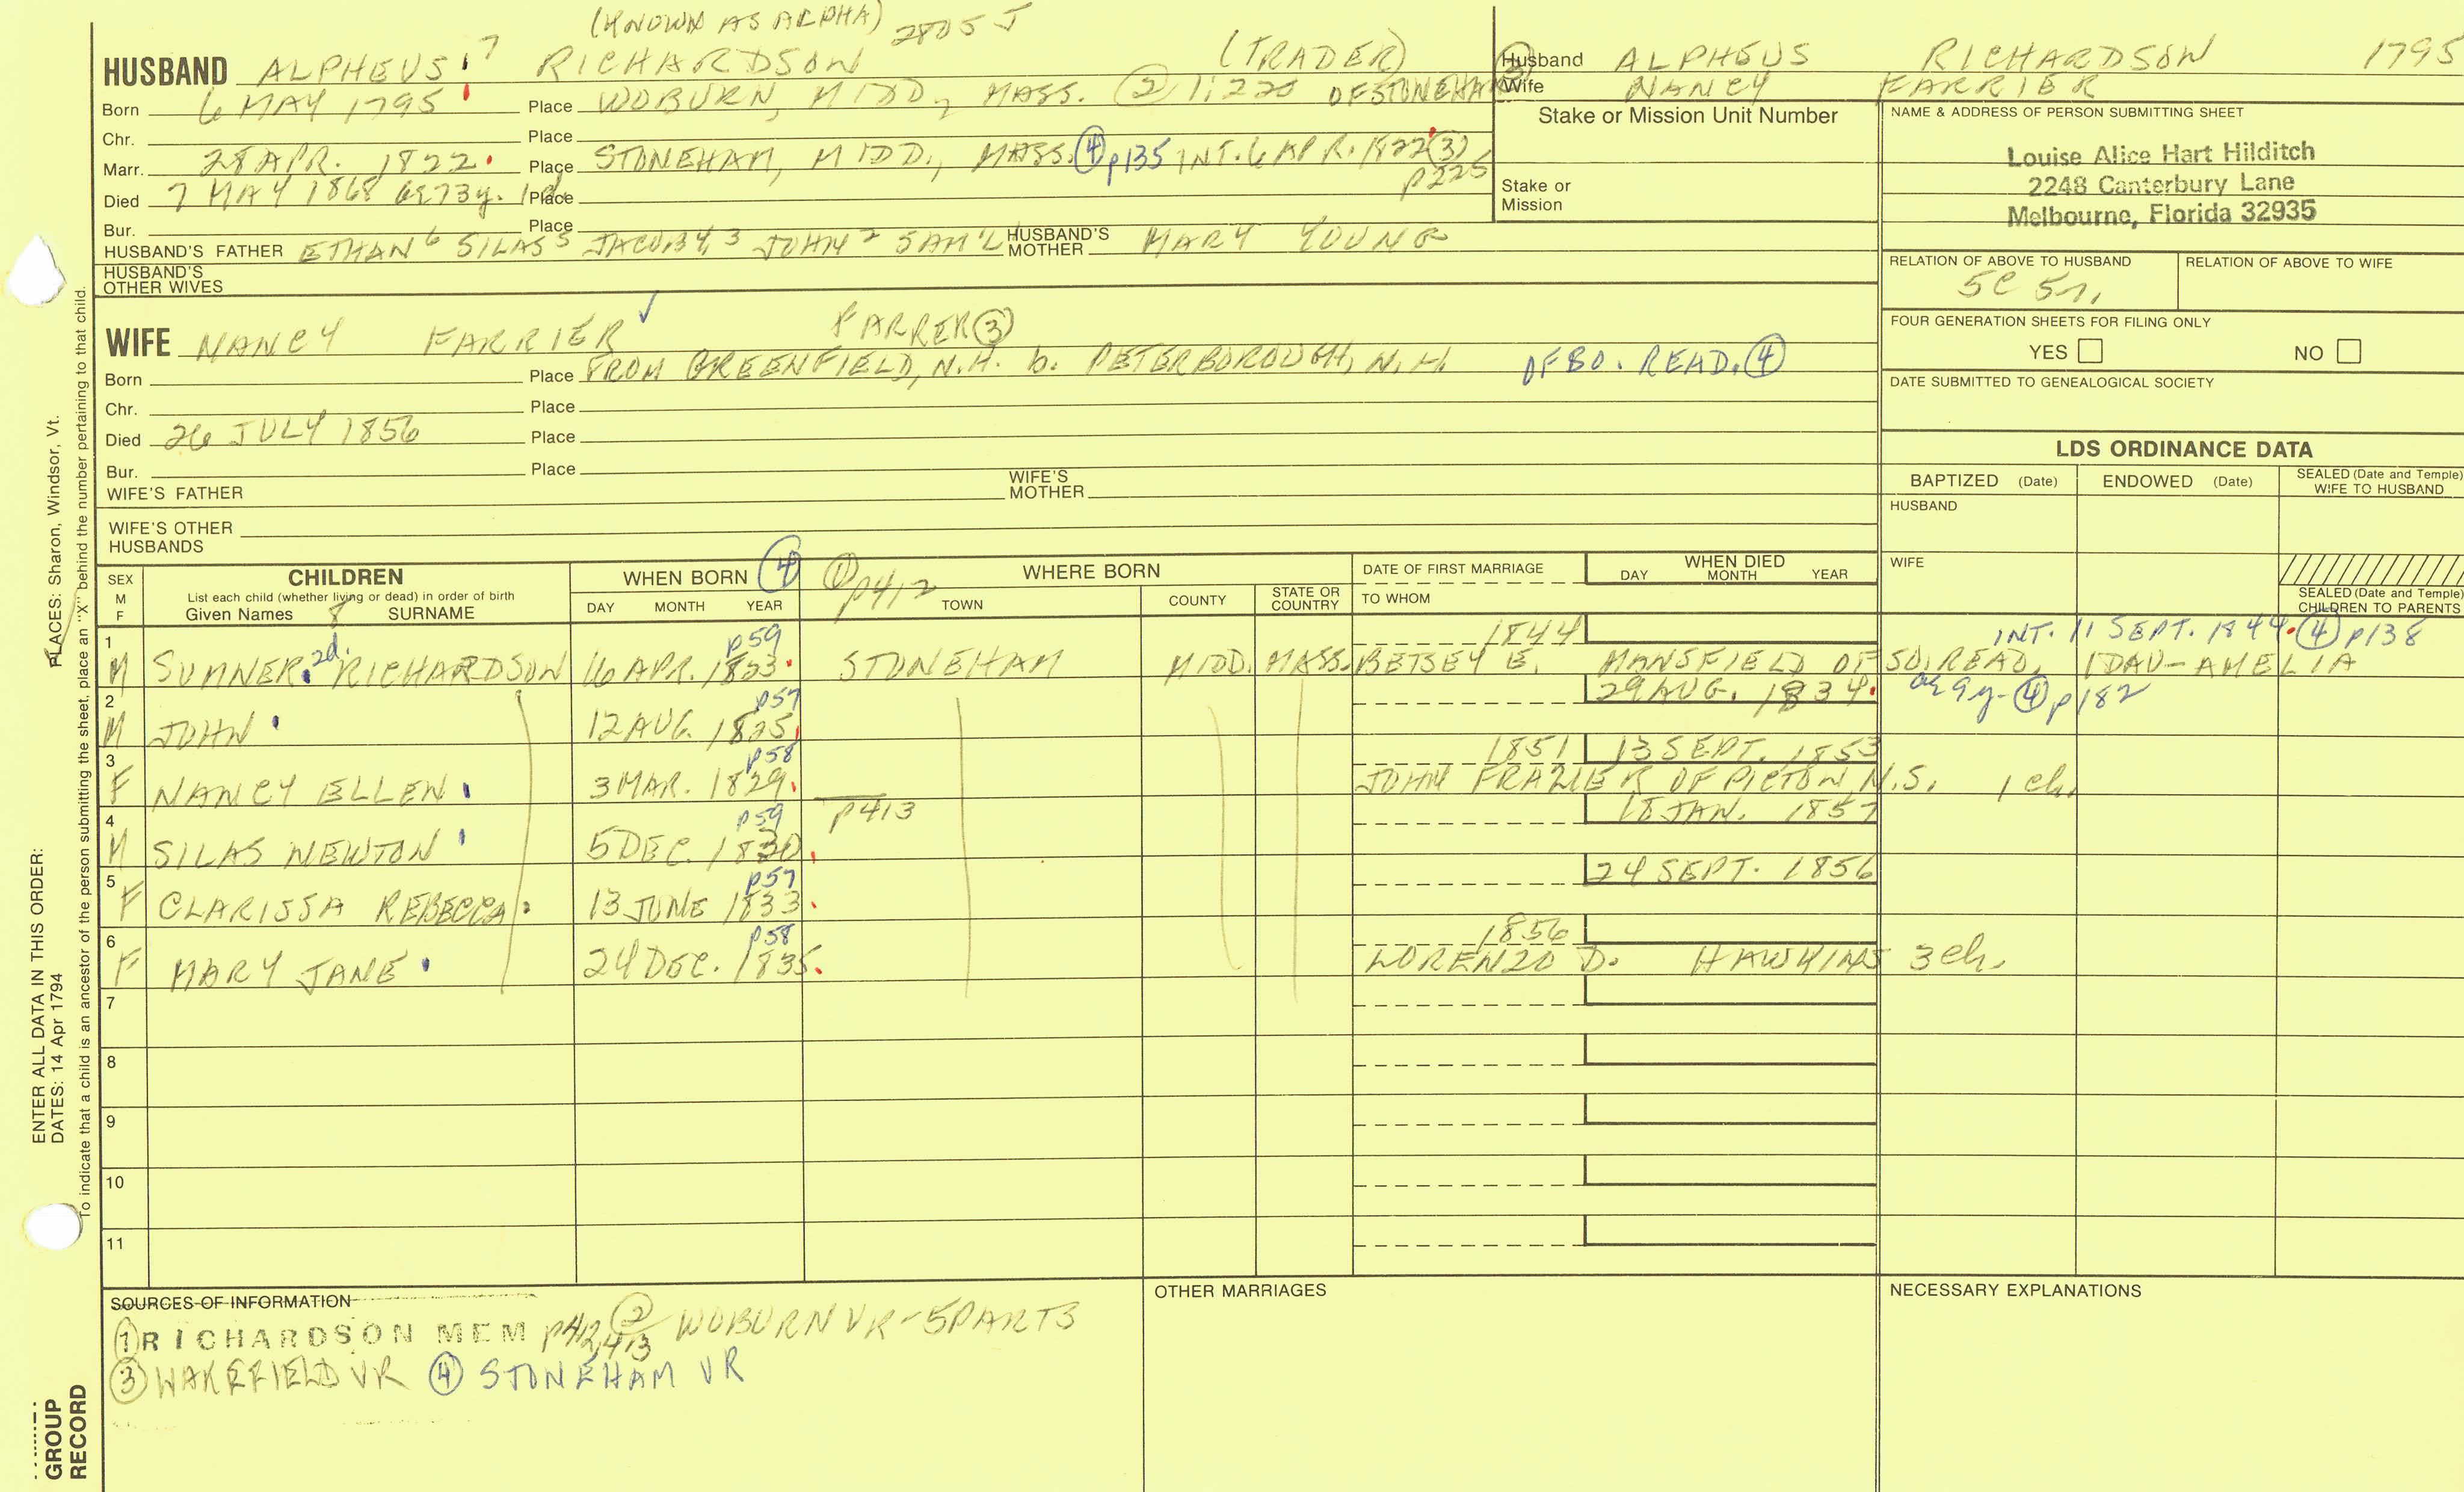 (KNOWN AS ALPHA) 2805 J
HUSBAND ALPHEUS 7 RICHARDSON (TRADER)
Born 6 MAY 1795 Place WOBURN, MIDD., MASS. ② 1:220 OF STONEHAM
Chr. Place
Marr. 28 APR. 1822. Place STONEHAM, MIDD., MASS. ④ p135 INT. 6 APR. 1822 ③ p225
Died 7 MAY 1868 ae 73y. 1d Place
Bur. Place
HUSBAND'S FATHER ETHAN 6 SILAS 5 JACOB 4, 3 JOHN 2 SAM'L HUSBAND'S MOTHER MARY YOUNG
HUSBAND'S OTHER WIVES
Husband ALPHEUS RICHARDSON 1795
Wife NANCY FARRIER
Stake or Mission Unit Number
Stake or Mission
NAME & ADDRESS OF PERSON SUBMITTING SHEET
Louise Alice Hart Hilditch
2248 Canterbury Lane
Melbourne, Florida 32935
RELATION OF ABOVE TO HUSBAND RELATION OF ABOVE TO WIFE
5C 5r.
FOUR GENERATION SHEETS FOR FILING ONLY
YES NO
DATE SUBMITTED TO GENEALOGICAL SOCIETY
WIFE NANCY FARRIER ✓ FARRER ③
Born Place FROM GREENFIELD, N.H. b. PETERBOROUGH, N.H. OF SO. READ. ④
Chr. Place
Died 26 JULY 1856 Place
Bur. Place
WIFE'S FATHER WIFE'S MOTHER
WIFE'S OTHER HUSBANDS
LDS ORDINANCE DATA
BAPTIZED (Date) ENDOWED (Date) SEALED (Date and Temple) WIFE TO HUSBAND
HUSBAND
WIFE
SEALED (Date and Temple) CHILDREN TO PARENTS
SEX M F CHILDREN WHEN BORN ④ ① p412 WHERE BORN DATE OF FIRST MARRIAGE WHEN DIED
List each child (whether living or dead) in order of birth
Given Names 8 SURNAME DAY MONTH YEAR TOWN COUNTY STATE OR COUNTRY TO WHOM DAY MONTH YEAR
1 p59 1844 INT. 11 SEPT. 1844. ④ p138
M SUMNER 2d. RICHARDSON 16 APR. 1823. STONEHAM MIDD. MASS. BETSEY E. MANSFIELD OF SO. READ. IDAU-AMELIA
2 p57 29 AUG. 1834. ae 9y- ④ p182
M JOHN 12 AUG. 1825
3 p58 1851 13 SEPT. 1853
F NANCY ELLEN 3 MAR. 1829. JOHN FRAZIER OF PICTON, N.S. 1 ch.
4 p59 p413 18 JAN. 1857
M SILAS NEWTON 5 DEC. 1830
5 p57 24 SEPT. 1856
F CLARISSA REBECCA 13 JUNE 1833.
6 p58 1856
F MARY JANE 24 DEC. 1835. LORENZO D. HAWKINS 3 ch.
7
8
9
10
11
SOURCES OF INFORMATION
① RICHARDSON MEM p412, 413 ② WOBURN VR-5 PARTS
③ WAKEFIELD VR ④ STONEHAM VR
OTHER MARRIAGES
NECESSARY EXPLANATIONS
ENTER ALL DATA IN THIS ORDER:
DATES: 14 Apr 1794 PLACES: Sharon, Windsor, Vt.
To indicate that a child is an ancestor of the person submitting the sheet, place an "X" behind the number pertaining to that child.
GROUP
RECORD